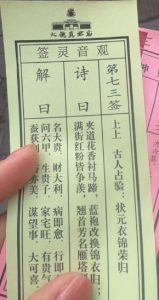 火德真君廟
观音灵签
第七三签
上上 古人占验：状元衣锦荣归
诗曰
夹道花香衬马蹄，蓝袍改换锦衣归；
满街红粉皆争羡，翘首芳名雁塔
解曰
名大贵 财大利 病即愈 行即
问六甲 生贵子 家宅旺 有贵
蚕获 亦美 谋望事 大可喜